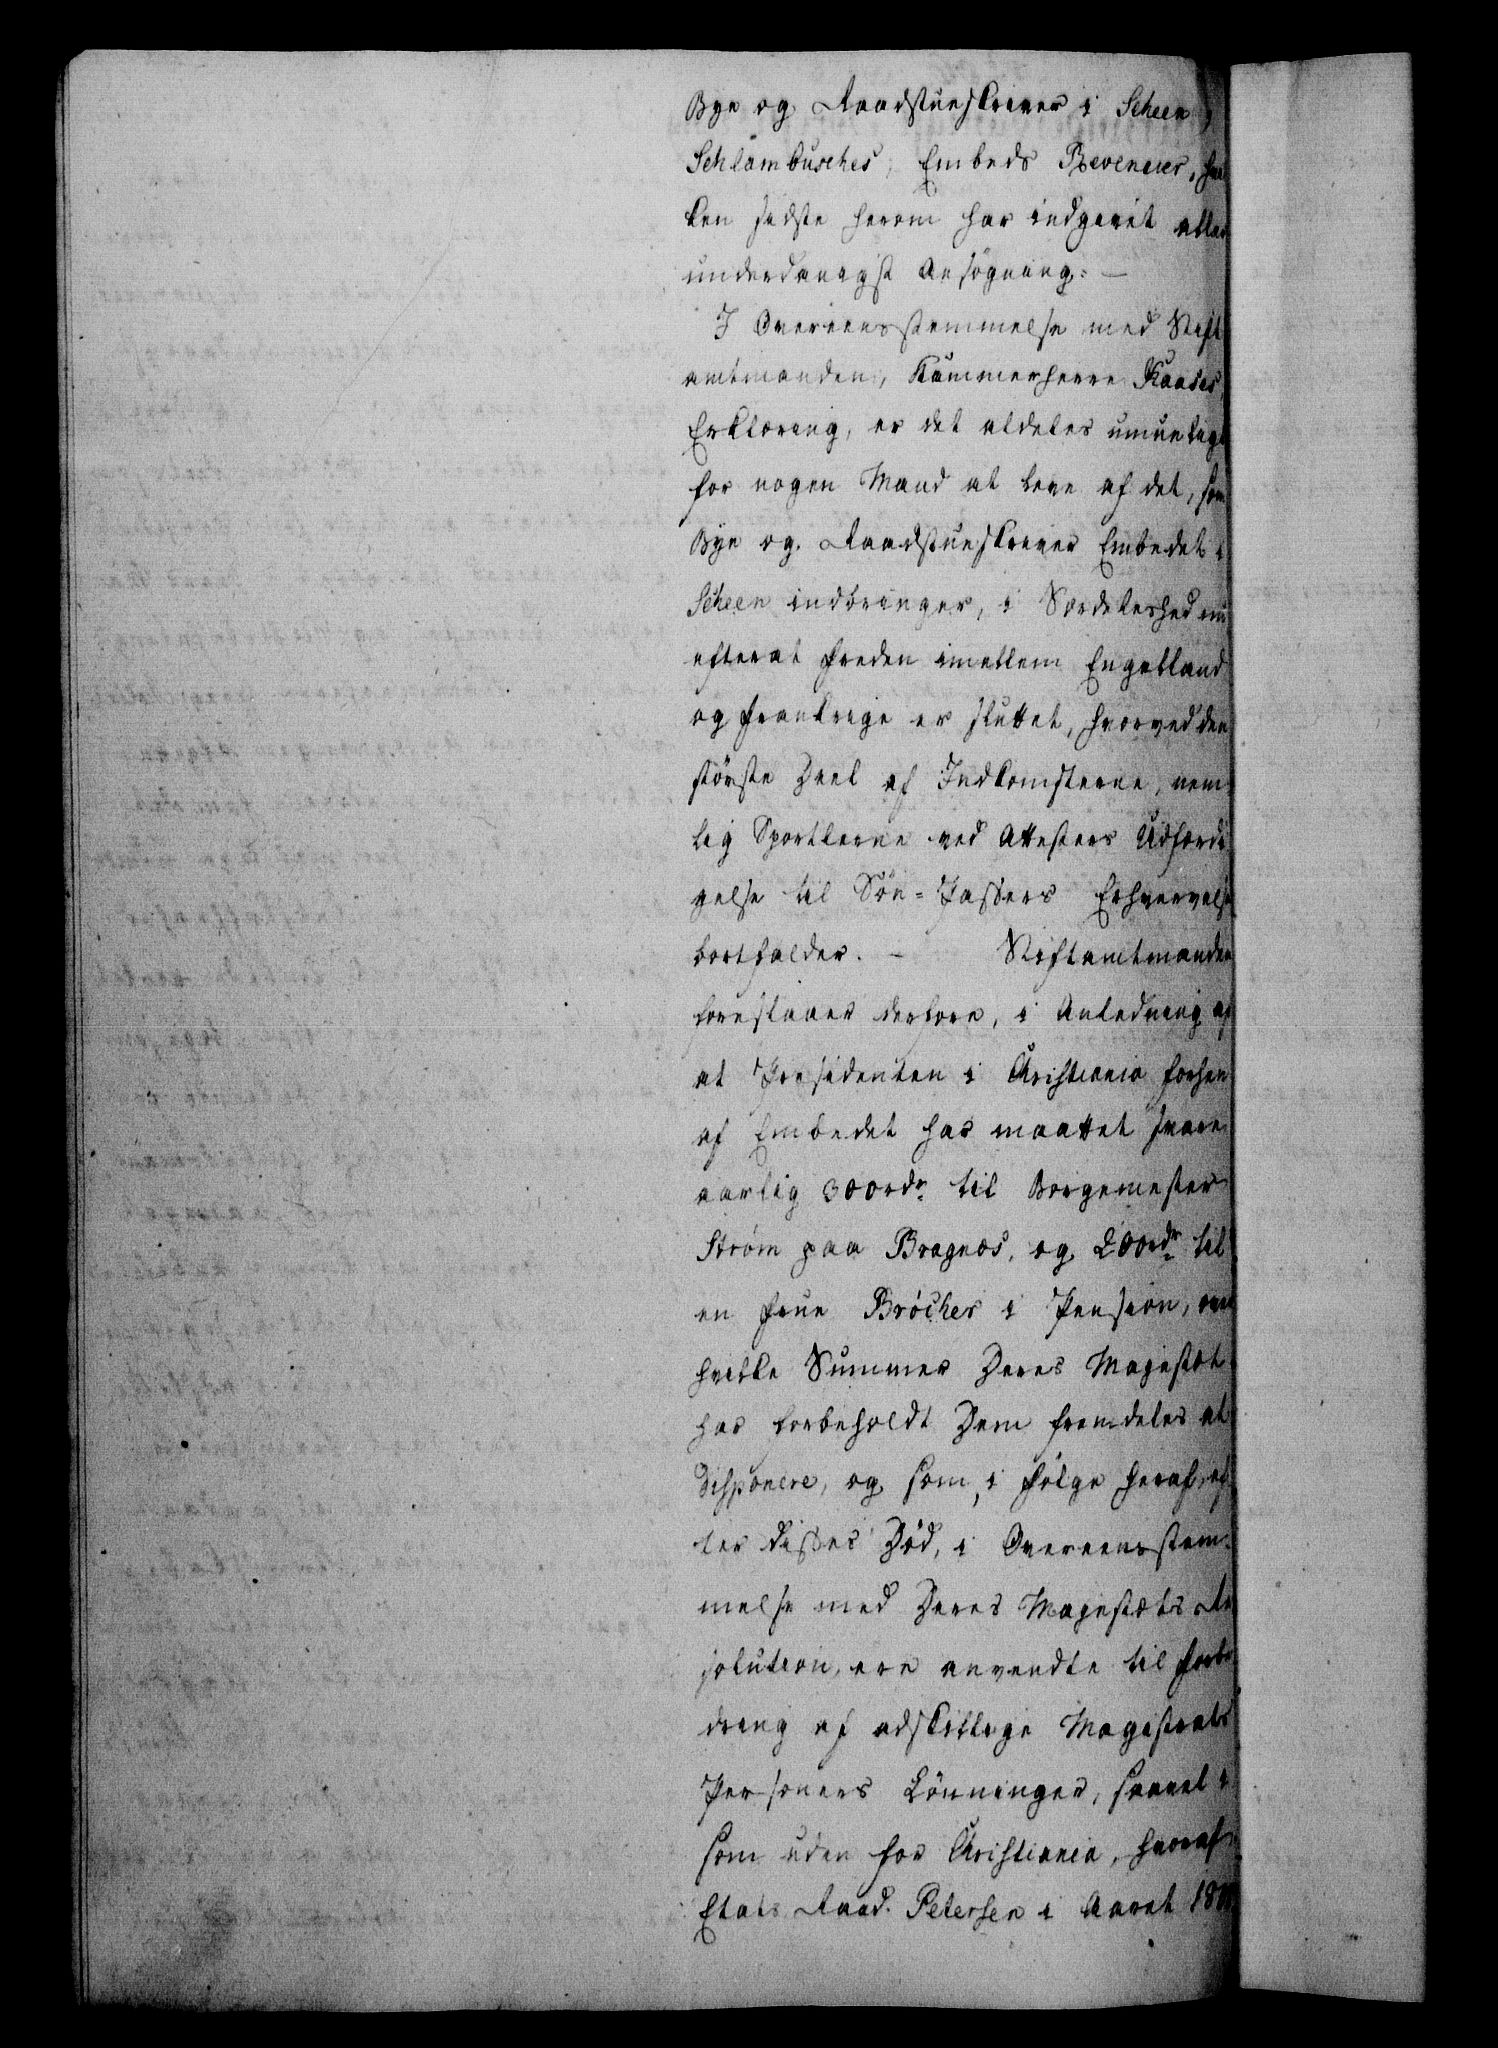 Bye og Raadstueskriver i Scheen,
Schlambusches, Embeds Revenuer, hvil
ken sidste herom har indgivet aller
underdanigst Ansøgning: —
I Overeensstemmelse med Stift
amtmanden, Kammerherre Kaases,
Erklæring, er det aldeles umueligt
for nogen Mand at leve af det, som
Bye og Raadstueskriver Embedet i
Scheen indbringer, i Særdeleshed nu
efterat Freden imellem Engelland
og Frankrige er sluttet, hvorved den
største Deel af Indkomsterne, nem
lig Sportlerne ved Attesters Udfærdi
gelse til Söe-Passers Erhvervelse
bortfalder. — Stiftamtmanden
foreslaaer derfore, i Anledning af
at Præsidenten i Christiania forhen
af Embedet har maattet svare
aarlig 300rdr til Borgemester
Strøm paa Bragnæs, og 200rdr til
en Frue Bröcher i Pension, over
hvilke Summer Deres Majestæt
har forbeholdt Dem fremdeles at
disponere, og som, i Følge heraf, ef
ter disses Död, i Overeensstem-
melse med Deres Majestæts Re
solution, ere anvendte til Forbe
dring af adskillige Magistrats
Personers Lönninger, saavel i
som uden for Christiania, hvoraf
Etats Raad Petersen i Aaret